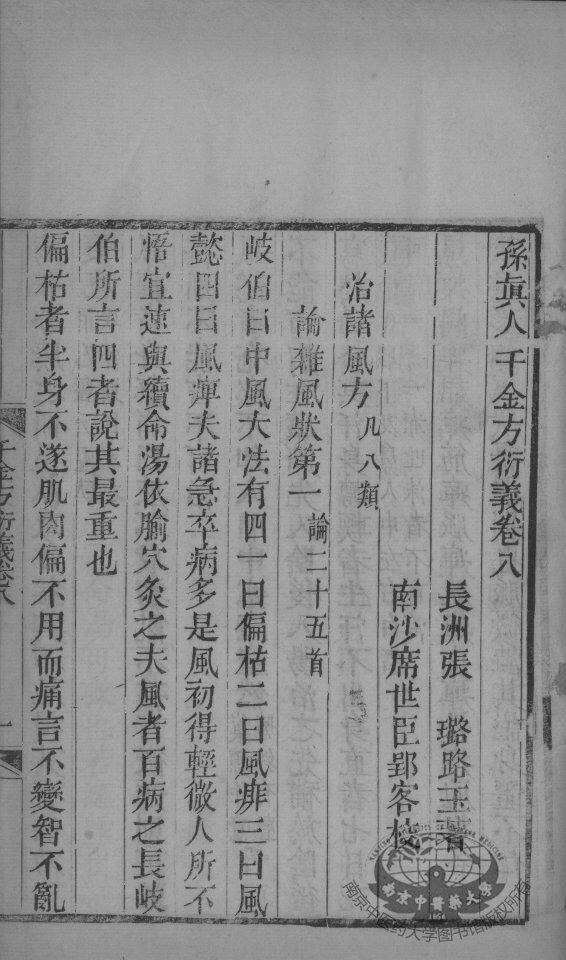 孫眞人千金方衍義卷八
長洲張　璐路玉著
南沙席世臣郢客校
治諸風方凡八類
論雜風狀第一論二十五首
岐伯曰中風大法有四一曰偏枯二曰風痱三曰風
懿四曰風痺夫諸急卒病多是風初得輕微人所不
悟宜速與續命湯依腧穴灸之夫風者百病之長岐
伯所言四者說其最重也
偏枯者半身不遂肌肉偏不用而痛言不變智不亂
千金方衍義卷八
一
南京中醫藥大學
南京中医药大学图书馆版权所有